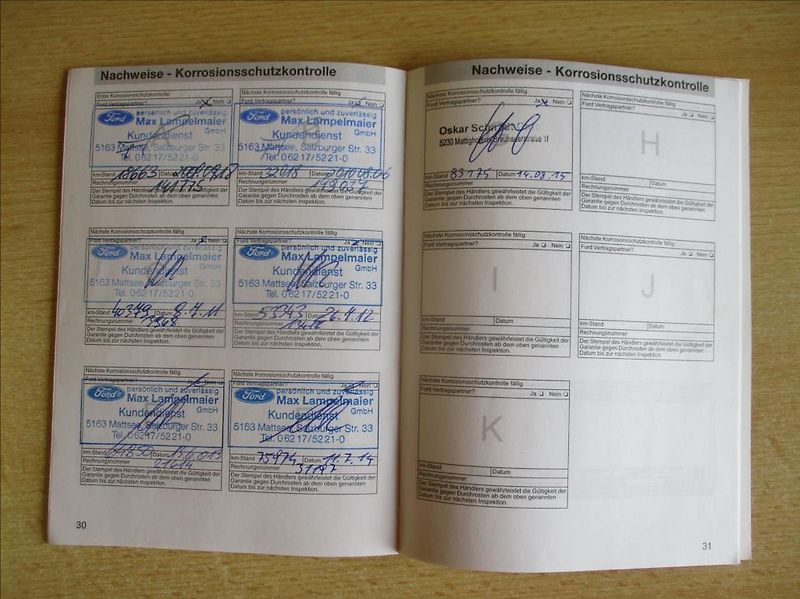 Nachweise - Korrosionsschutzkontrolle
Erste Korrosionsschutzkontrolle
Ford Vertragspartner? Ja Nein
Ford
persönlich und zuverlässig
Max Lampelmaier
GmbH
Kundendienst
5163 Mattsee, Salzburger Str. 33
Tel. 0 62 17/52 21-0
km-Stand 18665 Datum
Rechnungsnummer 141775
Der Stempel des Händlers gewährleistet die Gültigkeit der
Garantie gegen Durchrosten ab dem oben genannten
Datum bis zur nächsten Inspektion.
Nächste Korrosionsschutzkontrolle fällig
Ford Vertragspartner? Ja Nein
Ford
persönlich und zuverlässig
Max Lampelmaier
GmbH
Kundendienst
5163 Mattsee, Salzburger Str. 33
Tel. 0 62 17/52 21-0
km-Stand 32018 Datum
Rechnungsnummer
Der Stempel des Händlers gewährleistet die Gültigkeit der
Garantie gegen Durchrosten ab dem oben genannten
Datum bis zur nächsten Inspektion.
Nächste Korrosionsschutzkontrolle fällig
Ford Vertragspartner? Ja Nein
Ford
persönlich und zuverlässig
Max Lampelmaier
GmbH
Kundendienst
5163 Mattsee, Salzburger Str. 33
Tel. 0 62 17/52 21-0
km-Stand 40379 Datum 8.7.11
Rechnungsnummer
Der Stempel des Händlers gewährleistet die Gültigkeit der
Garantie gegen Durchrosten ab dem oben genannten
Datum bis zur nächsten Inspektion.
Nächste Korrosionsschutzkontrolle fällig
Ford Vertragspartner? Ja Nein
Ford
persönlich und zuverlässig
Max Lampelmaier
GmbH
Kundendienst
5163 Mattsee, Salzburger Str. 33
Tel. 0 62 17/52 21-0
km-Stand 55343 Datum
Rechnungsnummer
Der Stempel des Händlers gewährleistet die Gültigkeit der
Garantie gegen Durchrosten ab dem oben genannten
Datum bis zur nächsten Inspektion.
Nächste Korrosionsschutzkontrolle fällig
Ford Vertragspartner? Ja Nein
Ford
persönlich und zuverlässig
Max Lampelmaier
GmbH
Kundendienst
5163 Mattsee, Salzburger Str. 33
Tel. 0 62 17/52 21-0
km-Stand 64850 Datum
Rechnungsnummer
Der Stempel des Händlers gewährleistet die Gültigkeit der
Garantie gegen Durchrosten ab dem oben genannten
Datum bis zur nächsten Inspektion.
Nächste Korrosionsschutzkontrolle fällig
Ford Vertragspartner? Ja Nein
Ford
persönlich und zuverlässig
Max Lampelmaier
GmbH
Kundendienst
5163 Mattsee, Salzburger Str. 33
Tel. 0 62 17/52 21-0
km-Stand 75974 Datum 11.7.14
Rechnungsnummer
Der Stempel des Händlers gewährleistet die Gültigkeit der
Garantie gegen Durchrosten ab dem oben genannten
Datum bis zur nächsten Inspektion.
30
Nachweise - Korrosionsschutzkontrolle
Nächste Korrosionsschutzkontrolle fällig
Ford Vertragspartner? Ja Nein
Oskar
5230
km-Stand 83175 Datum 14.08.15
Rechnungsnummer
Der Stempel des Händlers gewährleistet die Gültigkeit der
Garantie gegen Durchrosten ab dem oben genannten
Datum bis zur nächsten Inspektion.
Nächste Korrosionsschutzkontrolle fällig
Ford Vertragspartner?
Ja Nein
H
km-Stand Datum
Rechnungsnummer
Der Stempel des Händlers gewährleistet die Gültigkeit der
Garantie gegen Durchrosten ab dem oben genannten
Datum bis zur nächsten Inspektion.
Nächste Korrosionsschutzkontrolle fällig
Ford Vertragspartner?
Ja Nein
I
km-Stand Datum
Rechnungsnummer
Der Stempel des Händlers gewährleistet die Gültigkeit der
Garantie gegen Durchrosten ab dem oben genannten
Datum bis zur nächsten Inspektion.
Nächste Korrosionsschutzkontrolle fällig
Ford Vertragspartner?
Ja Nein
J
km-Stand Datum
Rechnungsnummer
Der Stempel des Händlers gewährleistet die Gültigkeit der
Garantie gegen Durchrosten ab dem oben genannten
Datum bis zur nächsten Inspektion.
Nächste Korrosionsschutzkontrolle fällig
Ford Vertragspartner?
Ja Nein
K
km-Stand Datum
Rechnungsnummer
Der Stempel des Händlers gewährleistet die Gültigkeit der
Garantie gegen Durchrosten ab dem oben genannten
Datum bis zur nächsten Inspektion.
31